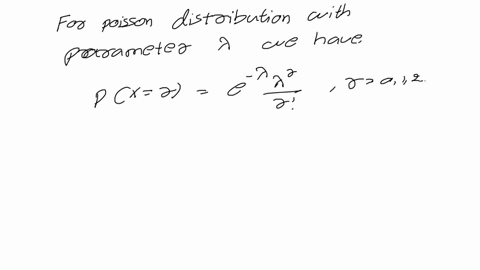 For poisson distribution with
parameter λ we have
P(X=r) = e^{-λ} λ^r / r! , r=0,1,2.